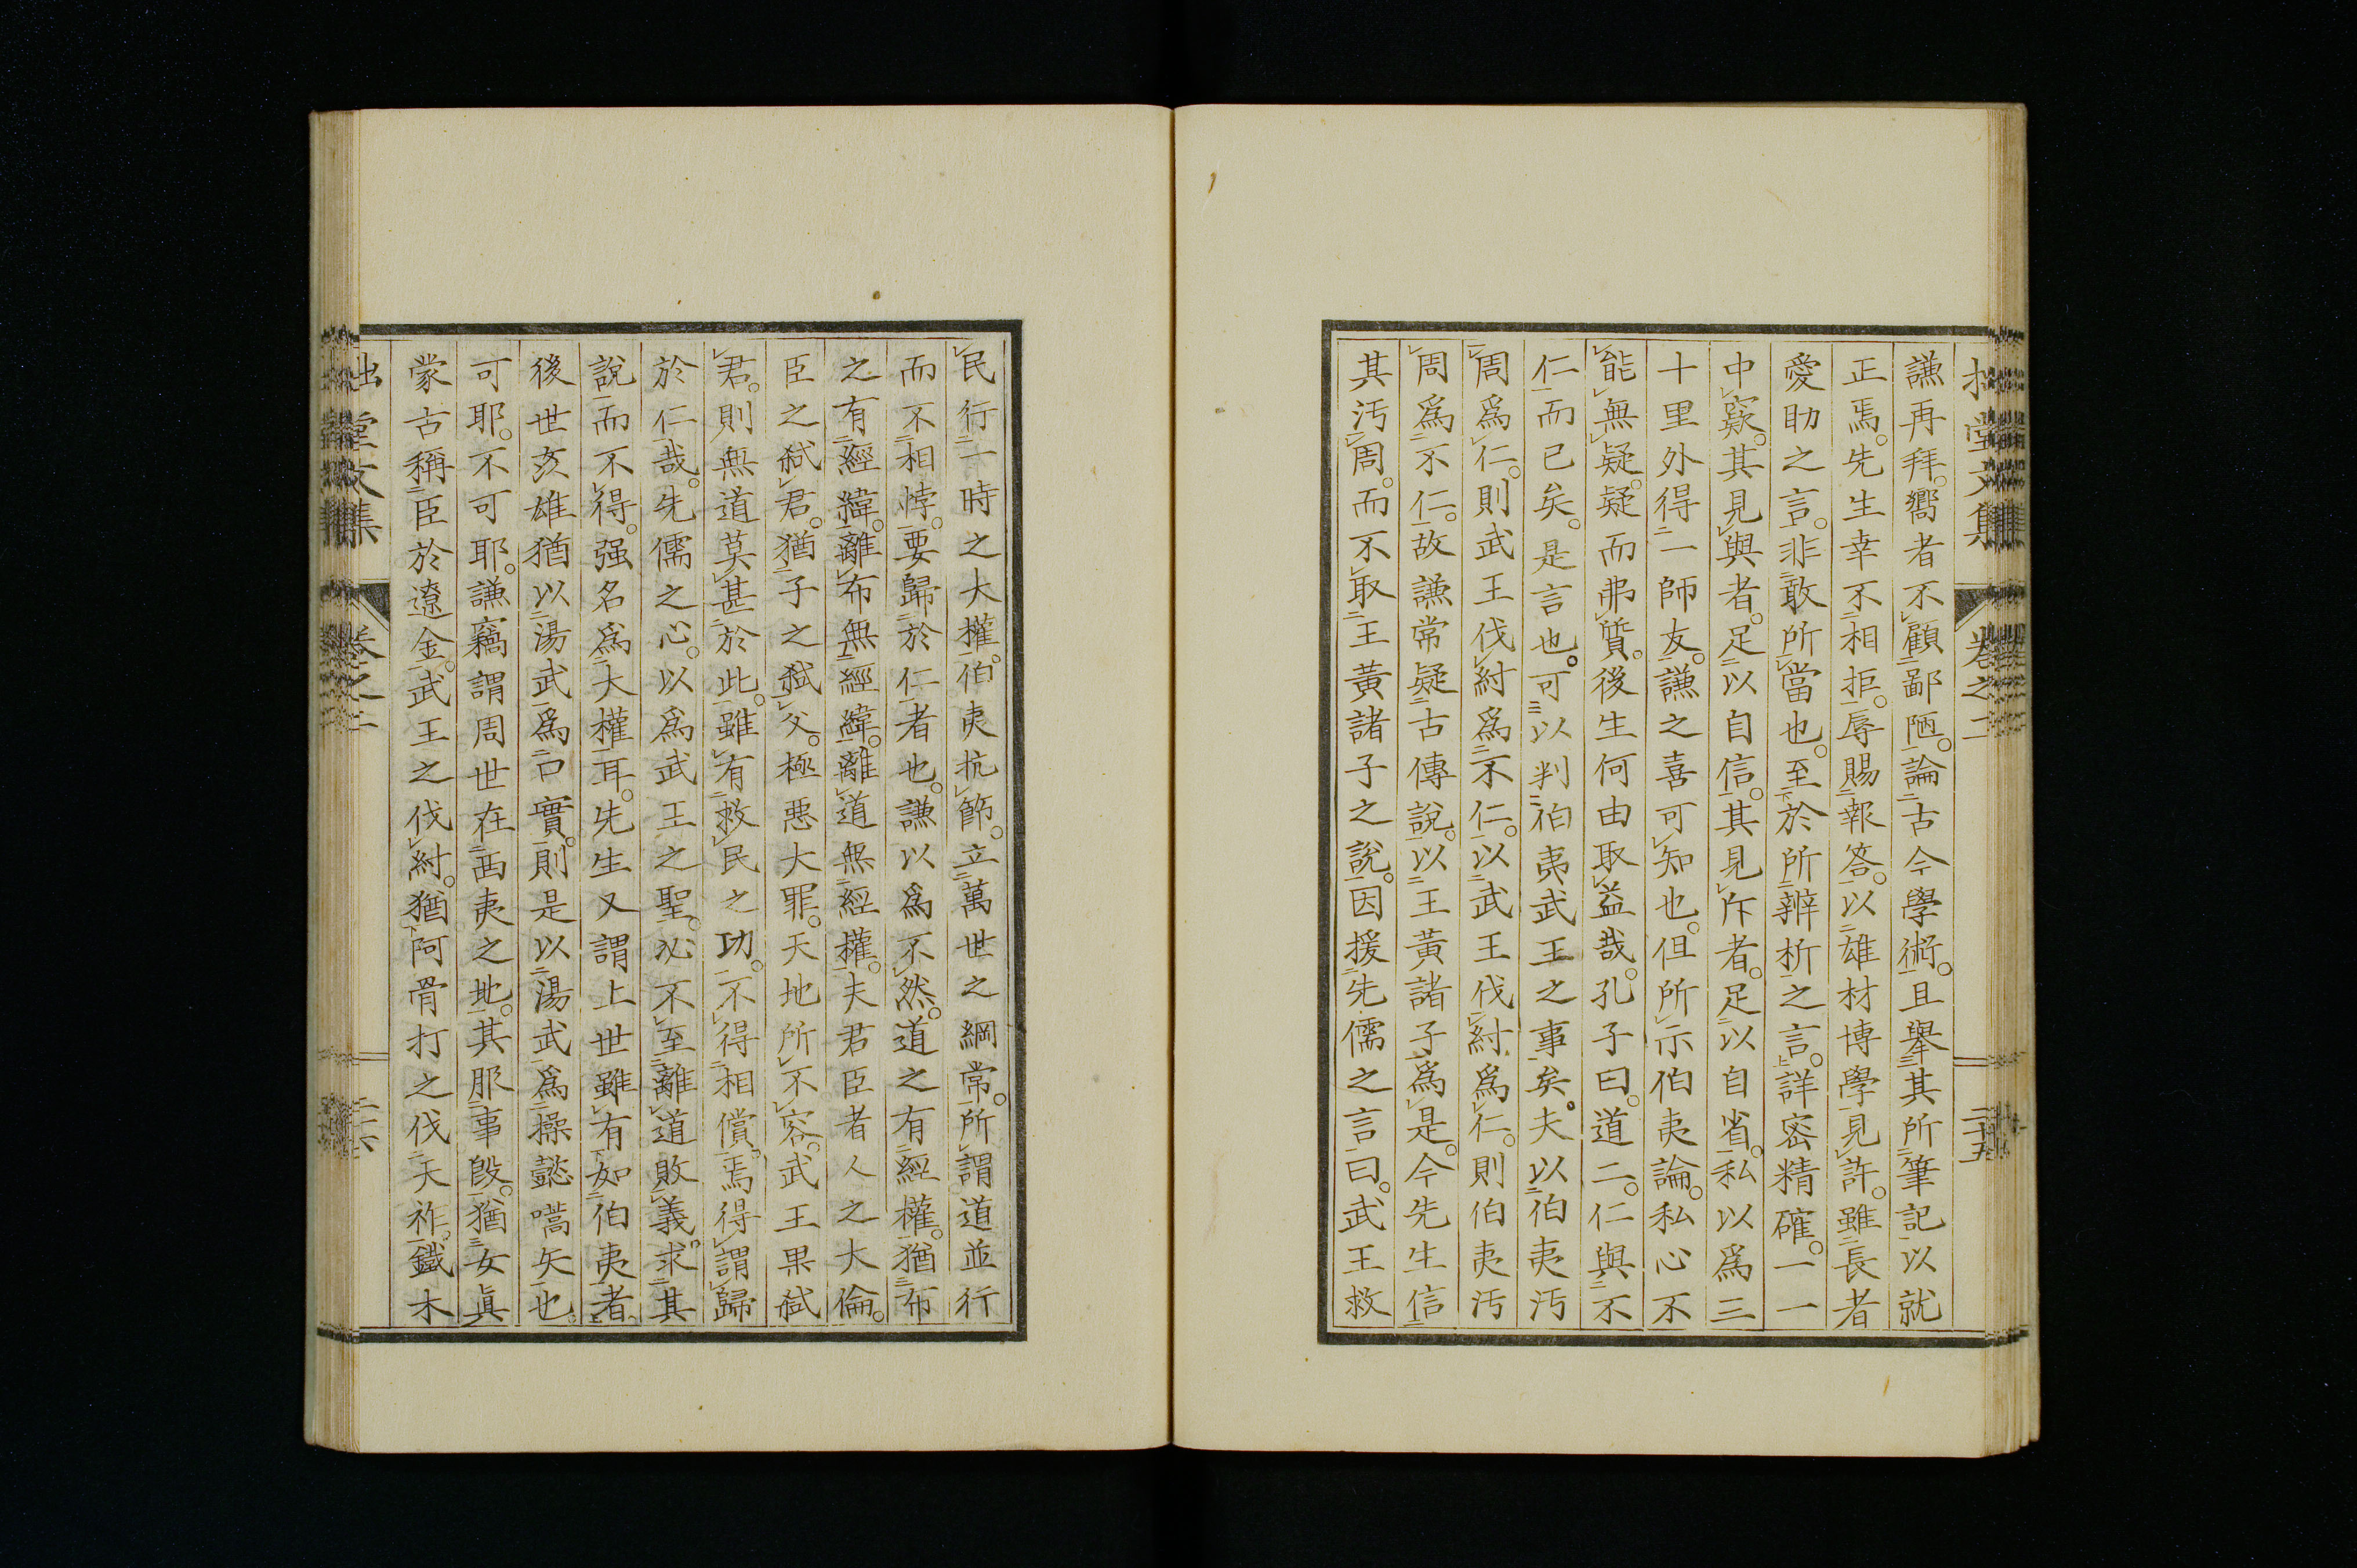 謙再拜。嚮者不顧鄙陋。論古今學術。且擧其所筆記以就
正焉。先生幸不相拒。辱賜報答。以雄材博學見許。雖長者
愛助之言。非敢所當也。至於所辨析之言。詳密精確。一一
中窾。其見與者。足以自信。其見斥者。足以自省。私以爲三
十里外得一師友。謙之喜可知也。但所示伯夷論。私心不
能無疑。疑而弗質。後生何由取益哉。孔子曰。道二。仁與不
仁而已矣。是言也。可以判伯夷武王之事矣。夫以伯夷汚
周爲仁。則武王伐紂爲不仁。以武王伐紂爲仁。則伯夷汚
周爲不仁。故謙常疑古傳說。以王黃諸子爲是。今先生信
其汚周。而不取王黃諸子之說。因援先儒之言曰。武王救
民行一時之大權。伯夷抗節。立萬世之綱常。所謂道並行
而不相悖。要歸於仁者也。謙以爲不然。道之有經權。猶布
之有經緯。離布無經緯。離道無經權。夫君臣者人之大倫。
臣之弑君。猶子之弑父。極惡大罪。天地所不容。武王果弑
君。則無道莫甚於此。雖有救民之功。不得相償。焉得謂歸
於仁哉。先儒之心。以爲武王之聖。必不至離道敗義。求其
說而不得。强名爲大權耳。先生又謂上世雖有如伯夷者
後世亥雄猶以湯武爲口實。則是以湯武爲操懿嚆矢也
可耶。不可耶。謙竊謂周世在西夷之地。其服事殷。猶女眞
蒙古稱臣於遼金。武王之伐紂。猶阿骨打之伐天祚。鐵木
拙堂文集 卷之二 二十五
拙堂文集 卷之二